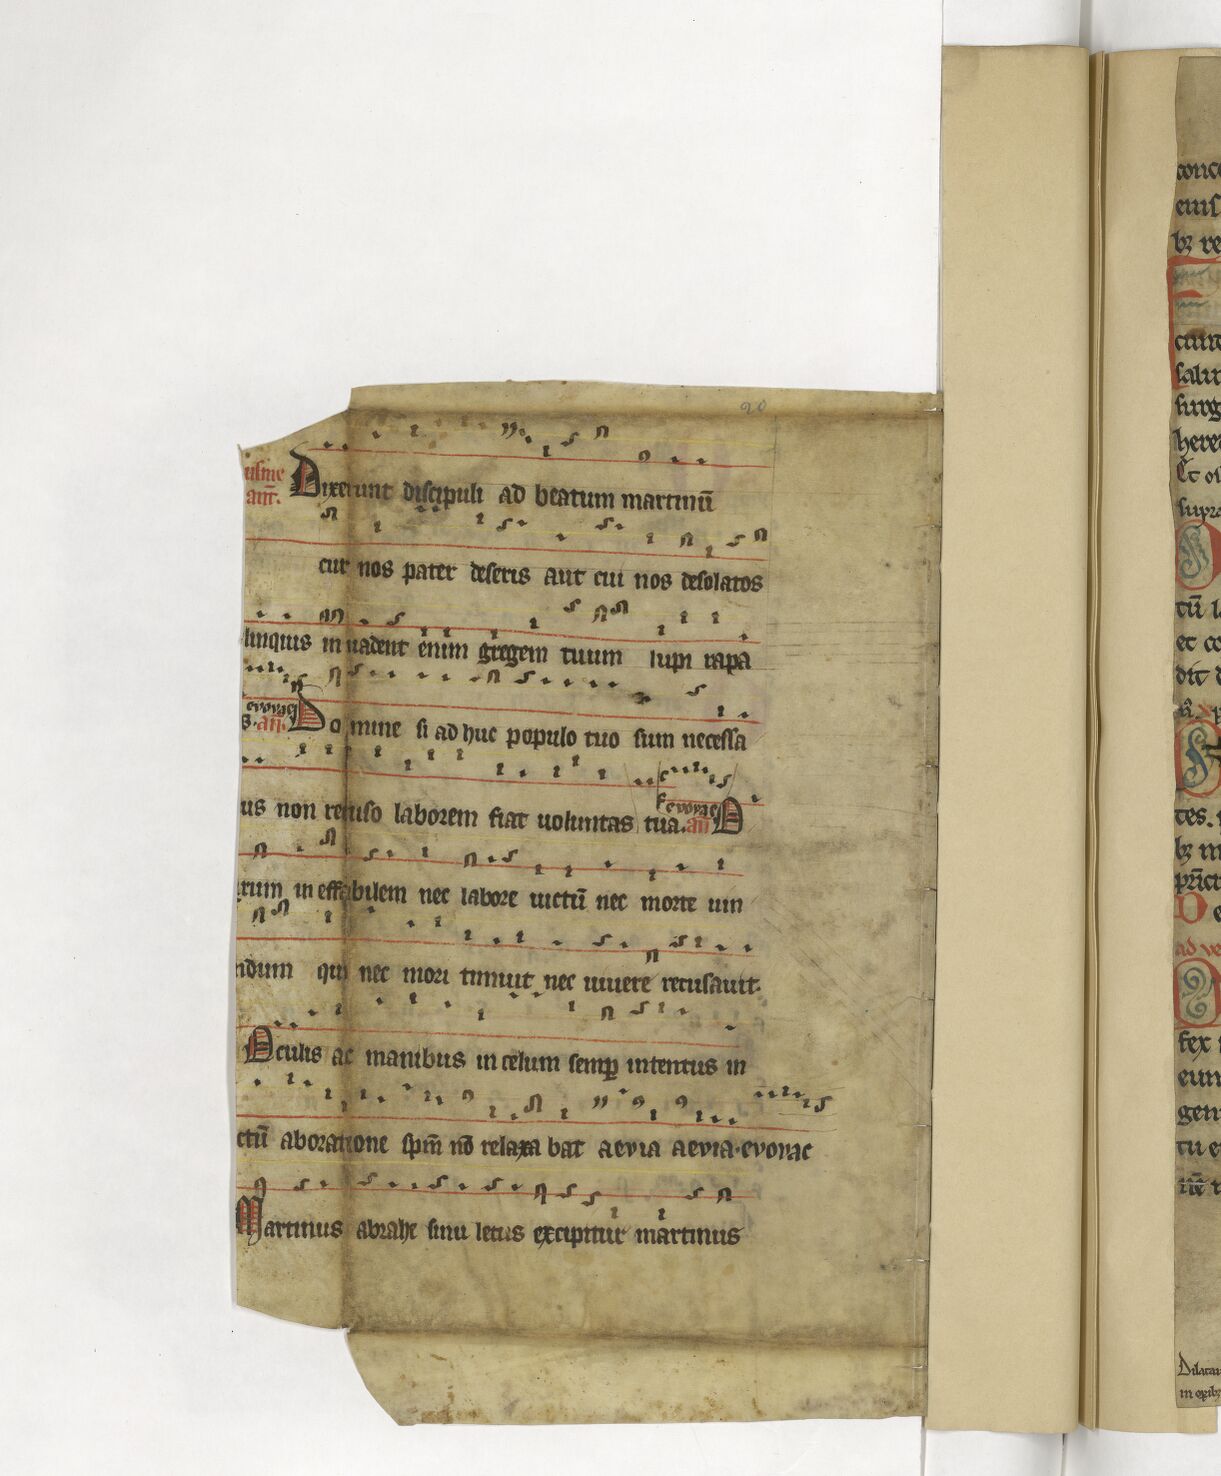 20
usme Dixerunt discipuli ad beatum martinū
añ.
cur nos pater deseris aut cui nos desolatos
linquis in uadent enim gregem tuum lupi rapa
evovae
s. añ. Do mine si ad huc populo tuo sum necessa
evovae
us non recuso laborem fiat uoluntas tua. añ O
rum in effabilem nec labore uictū nec morte uin
ndum qui nec mori timuit nec uiuere recusauit.
Oculis ac manibus in celum semꝑ intentus in
ctū aboratione spm̄ nō relaxa bat aevia aevia. evovae
Martinus abrahe sinu letus excipitur martinus
eius
bꝫ re
salu
surg
here
Et
supra
tū
et co
dit
tes.
bꝫ
ad ve
fex
eum
gen
tu
Dilatau
in